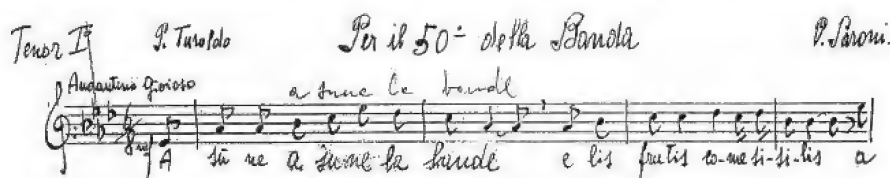 Tenor I° P. Turoldo Per il 50° della Banda P. Paroni.
Andantino Gioioso a sune la bande
mf A su ne a sune la bande e lis frutis co-me si-si-lis a